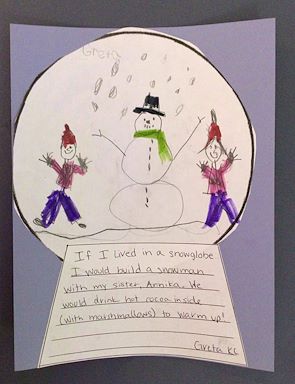 Greta
If I lived in a snowglobe
I would build a snowman
with my sister, Annika. We
would drink hot cocoa inside
(with marshmallows) to warm up!
Greta KC